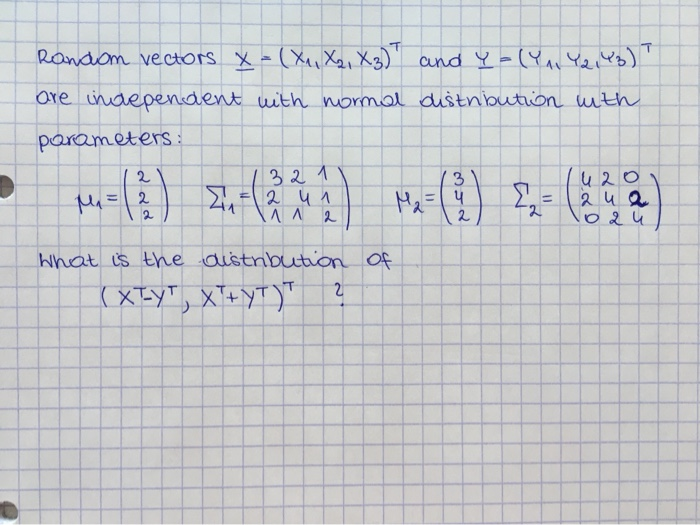 Random vectors X = (X1, X2, X3)^T and Y = (Y1, Y2, Y3)^T
are independent with normal distribution with
parameters:
μ1 = (2 2 2) Σ1 = (3 2 1 / 2 4 1 / 1 1 2) μ2 = (3 4 2) Σ2 = (4 2 0 / 2 4 2 / 0 2 4)
What is the distribution of
(X^T - Y^T, X^T + Y^T)^T ?